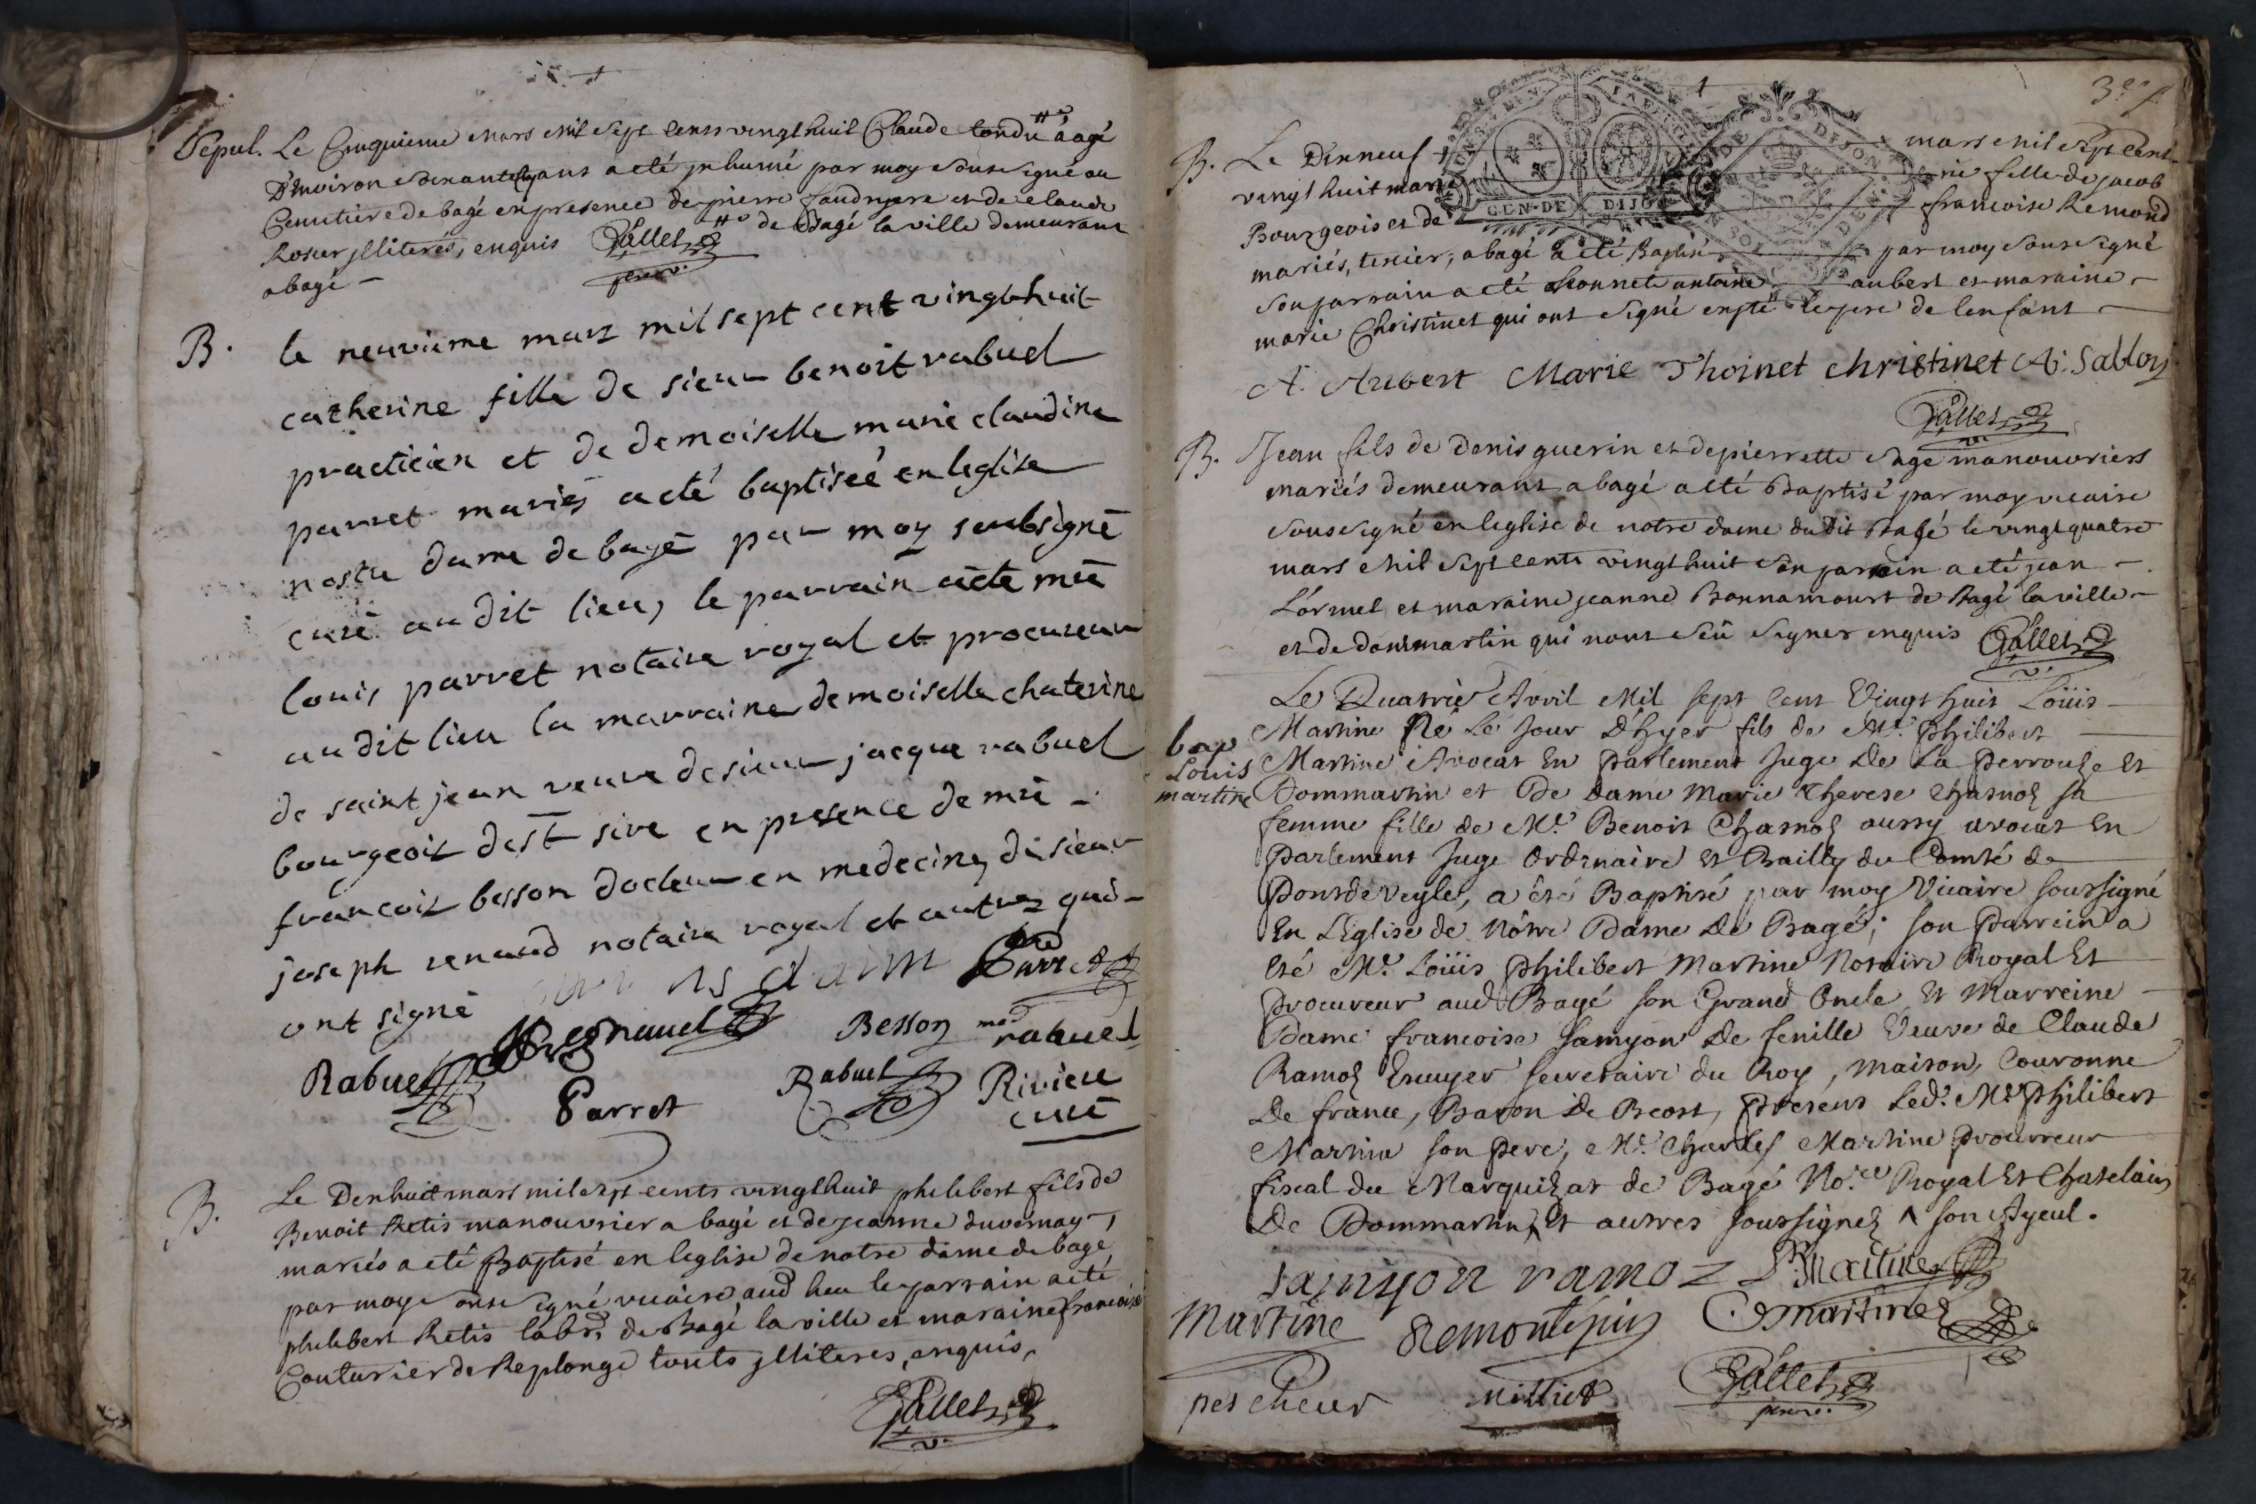 Sepul. Le Cinquieme mars mil sept cents vingt huit Claude tondu aagé
D'Environ soixante ans a eté inhumé par moy soussigné au
Cemitiere de bagé en presence de pierre faudruyere et de claude
Rosier illiterés, enquis Gallet de Bagé la ville demeurant
a bagé
B. le neuvieme mars mil sept cent vingt huit
catherine fille de sieur benoit rabuel
practicien et de demoiselle marie claudine
parret mariés a eté baptiseé en leglise
nostre dame de bagé par moy soubsigné
curé audit lieu, le parrain a eté mre
louis parret notaire royal et procureur
audit lieu la marraine demoiselle chaterine
de saint jean veuve de sieur jacque rabuel
bourgeois de st sire en presence de mre
françois besson docteur en medecine, du sieur
joseph renaud notaire royal et autres qui
ont signé Parret
Regnaud Besson rabuel
Rabuel Parret Rabuel Riviere
curé
B. Le Dixhuit mars mil sept cents vingt huit philibert fils de
Benoit Retis manouvrier a bagé et de jeanne duvernay,
mariés a eté Baptisé en leglise de notre dame de bagé
par moy soussigné vicaire aud lieu le parrain a eté
philibert Retis labr. de Bagé la ville et maraine francoise
Couturier de Replonge touts illiteres, enquis,
Gallet
v.
3e f
B. Le Dixneuf mars mil sept cent
vingt huit marie fille de jacob
Bourgeois et de francoise Remond
mariés, texier, a bagé a eté Baptisé par moy soussigné
son parrain a eté honnete antoine aubert et maraine
marie Christinet qui ont signé en pte le pere de lenfant
A. Aubert Marie Thoinet christinet A. Sabloy
Gallet
v.
B. Jean fils de Denis guerin et de pierrette sage manouvriers
mariés demeurant a bagé a eté Baptisé par moy vicaire
soussigné en leglise de notre dame dudit Bagé le vingt quatre
mars mil sept cents vingt huit son parrain a eté jean
Lormel et maraine jeanne Bonnamourt de Bagé la ville
et de dommartin qui nont seû signer enquis Gallet
v.
Le Quatrie Avril Mil sept Cent Vingt huit Loüis
Martine Né Le Jour D'hyer fils de Mr. Philibert
bap
Louis
martine
Martine Avocat En Parlement Juge De La Perrouze Et
Dommartin et De Dame Marie Therese Chasnoz sa
femme fille de Mr. Benoit Chasnoz aussy avocat En
Parlement Juge Ordinaire Et Bailly du Comté de
Pontdeveyle, a êté Baptisé par moy Vicaire soussigné
En L'Eglise de Nôtre Dame De Bagé; son Parrein a
Eté Mr. Loüis Philibert Martine Notaire Royal Et
Procureur aud Bagé son Grand Oncle Et Marreine
Dame francoise Samyon De fenille Veuve de Claude
Ramoz Ecuyer secretaire du Roy, Maison, Couronne
De france, Baron De Beost, Present Led. Mr. Philibert
Martine son Pere, Mr. Charles Martine Procureur
fiscal du Marquizat de Bagé No.re Royal Et Chatelain
De Dommartin, Et autres soussignez ^ son Ayeul.
sainyon ramoz P. Martine
Martine Remontépin C martinez
pescheur milliet Gallet